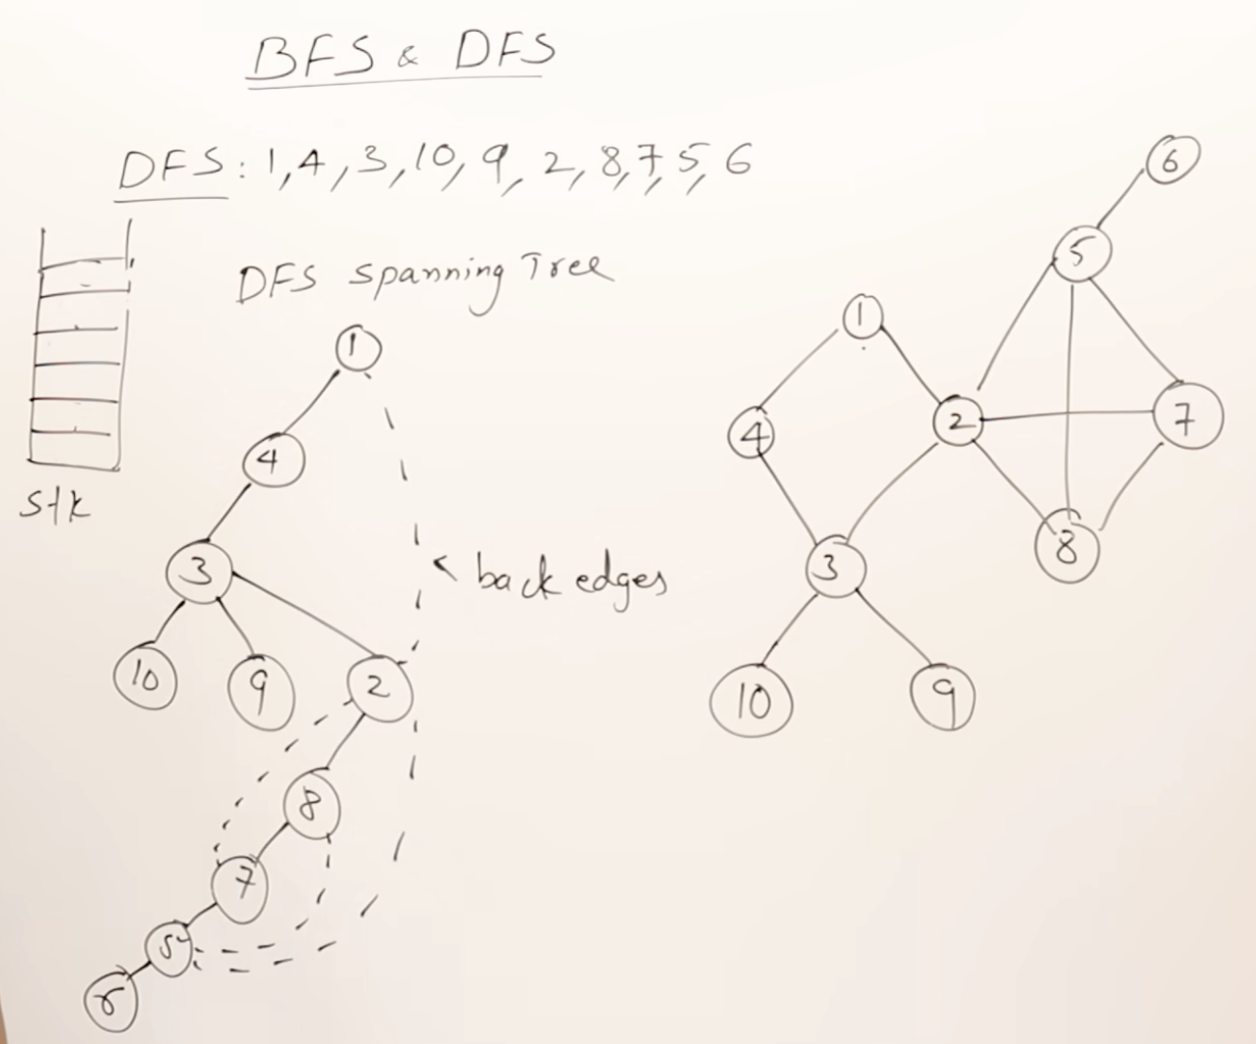 BFS & DFS
DFS: 1,4,3,10,9,2,8,7,5,6
DFS Spanning Tree
stk
1
4
3
10
9
2
8
7
5
6
back edges
6
5
1
4
2
7
3
8
10
9